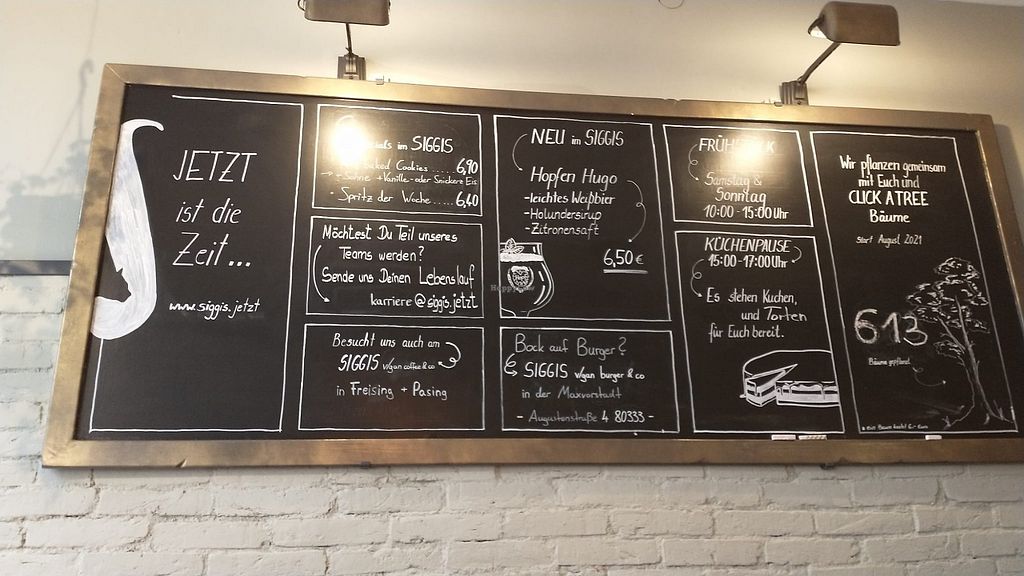 JETZT
ist die
Zeit...
www.siggis.jetzt
im SIGGIS
Cookies.... 6,90
Sahne + Vanille- oder Snickers Eis
- Spritz der Woche..... 6,40
Möchtest Du Teil unseres
Teams werden?
Sende uns Deinen Lebenslauf
karriere@siggis.jetzt
Besucht uns auch am
SIGGIS v/gan coffee & co
in Freising + Pasing
NEU im SIGGIS
Hopfen Hugo
-leichtes Weißbier
-Holundersirup
-Zitronensaft
6,50€
Bock auf Burger?
SIGGIS v/gan burger & co
in der Maxvorstadt
- Augustenstraße 4 80333 -
Samstag &
Sonntag
10:00 - 15:00 Uhr
KÜCHENPAUSE
15:00 - 17:00 Uhr
Es stehen Kuchen,
und Torten
für Euch bereit.
Wir pflanzen gemeinsam
mit Euch und
CLICK A TREE
Bäume
Start August 2021
613
Bäume gepflanzt